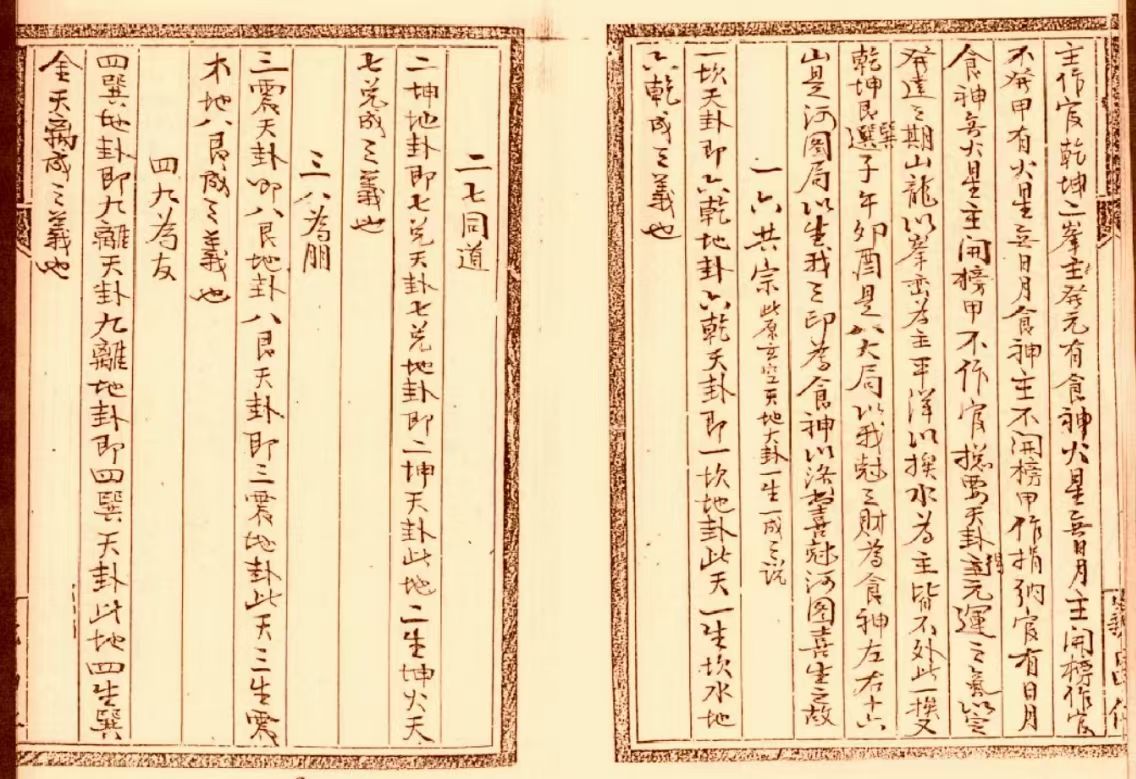 主作官乾坤二峯主發元有食神火星無日月主開榜作官
不發甲有火星無日月食神主不開榜甲作捐納官有日月
食神無火星主開榜甲不作官總要天卦得元運之氣以定
發達之期山龍以峯巒為主平洋以挨水為主皆不外此一挨又
乾坤艮巽子午卯酉是八大局以我尅之財為食神左右十六
山是河圖局以生我之印為食神以洛書喜尅河圖喜生之故
一六共宗此原玄空天地大卦一生一成之說
一坎天卦即六乾地卦六乾天卦即一坎地卦此天一生坎水地
六乾成之義也
二七同道
二坤地卦即七兌天卦七兌地卦即二坤天卦此地二生坤火天
七兌成之義也
三八為朋
三震天卦即八艮地卦八艮天卦即三震地卦此天三生震
木地八艮成之義也
四九為友
四巽地卦即九離天卦九離地卦即四巽天卦此地四生巽
金天離成之義也